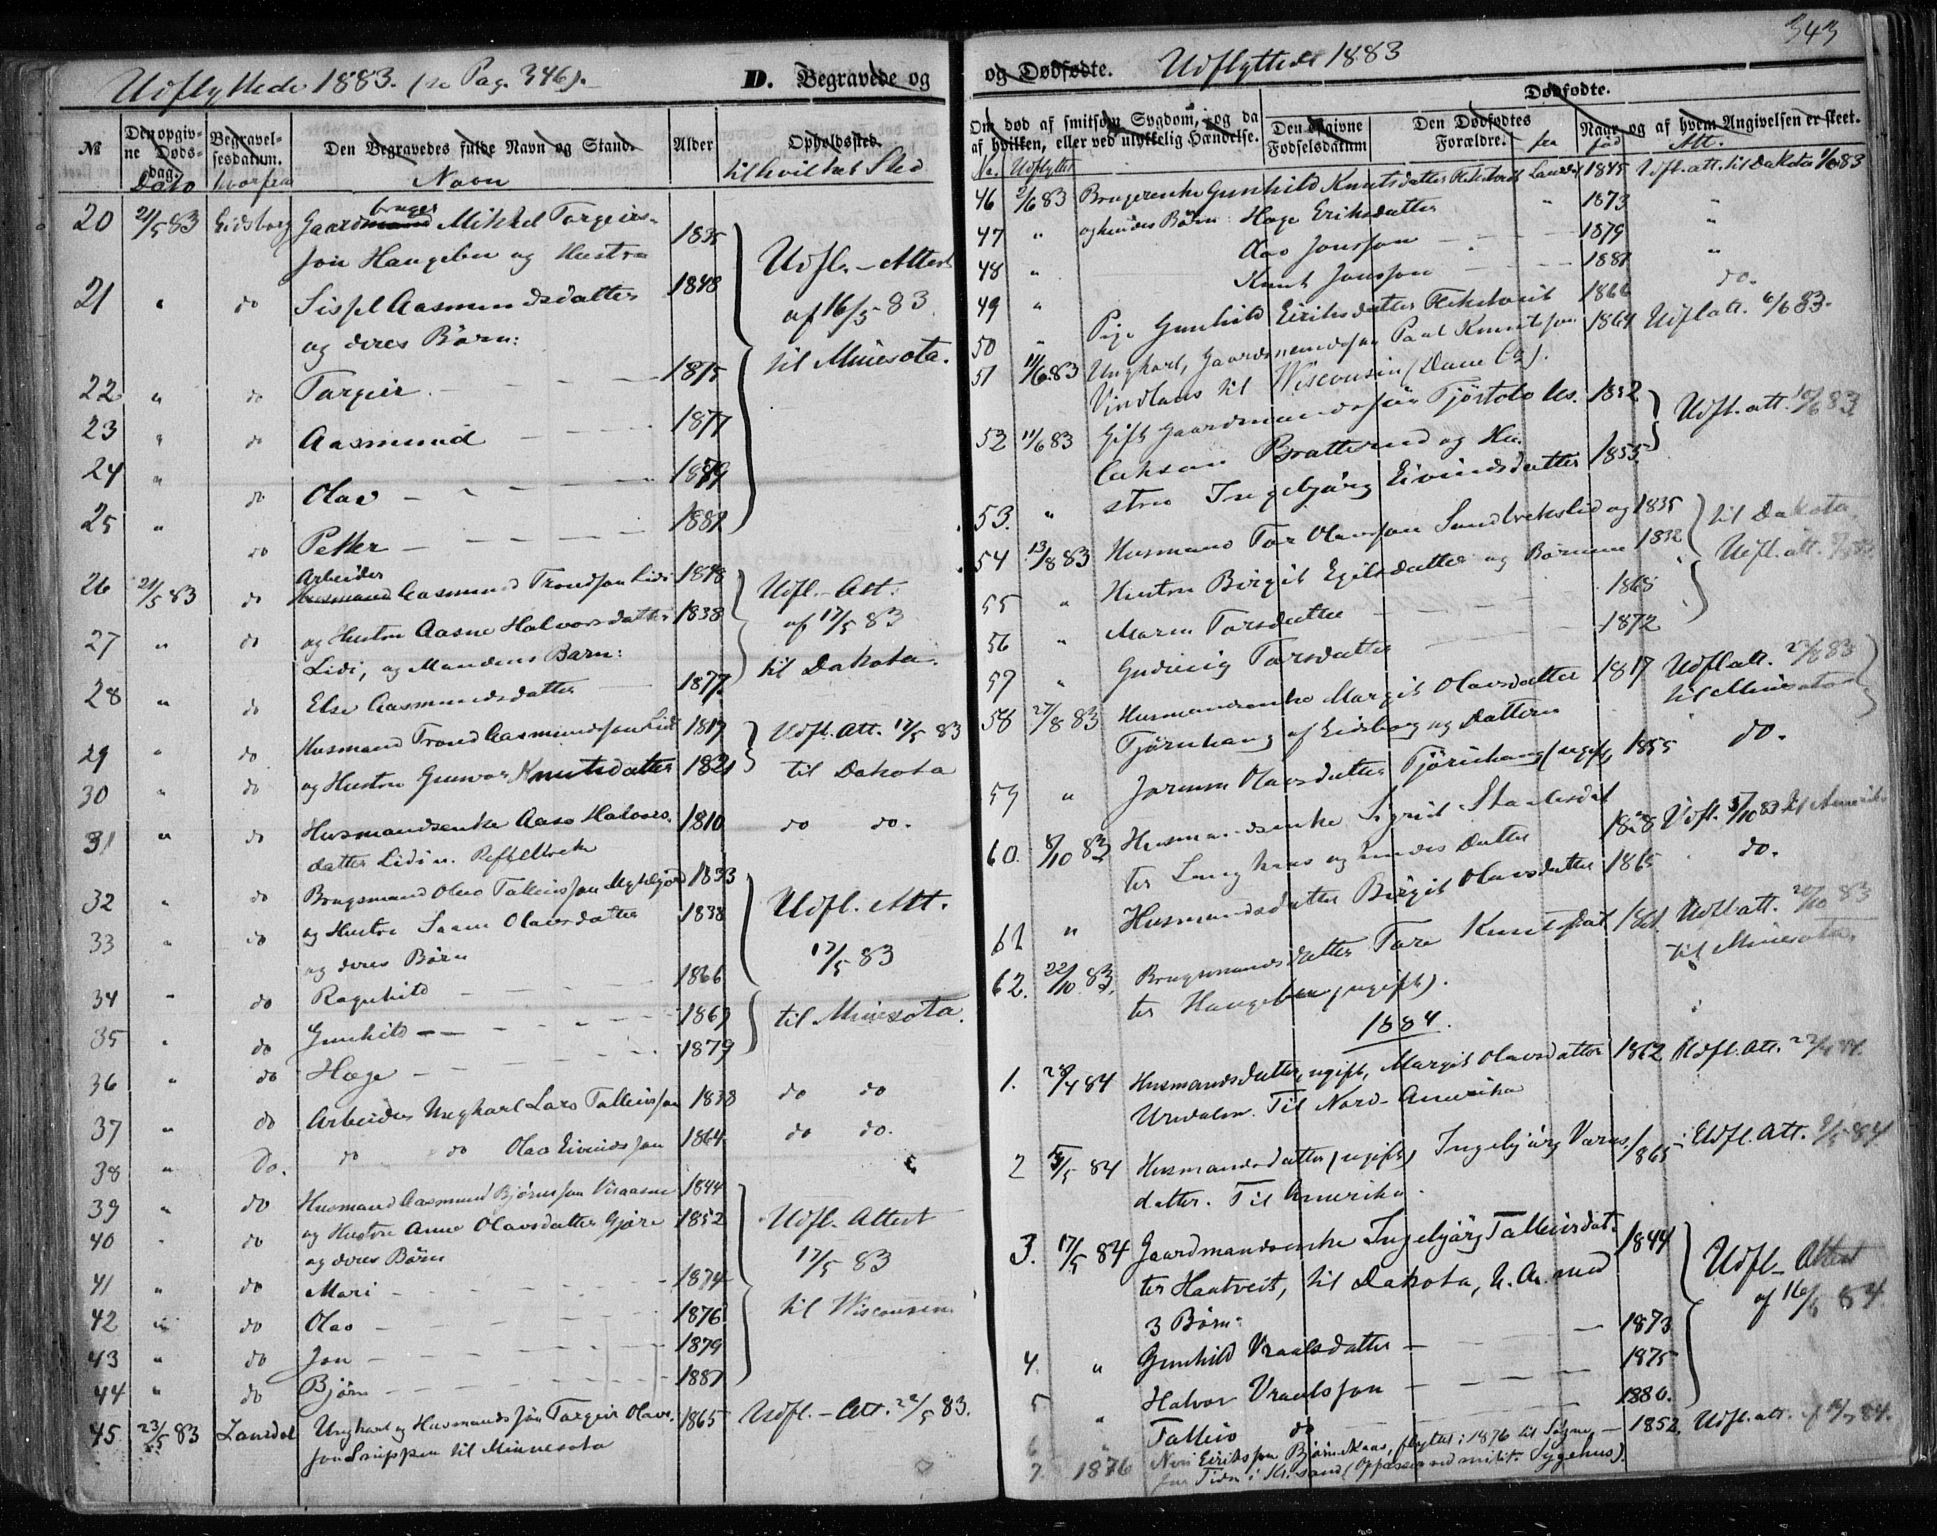 Udflyttede 1883. (se Pag. 346).
D. Begravede og
№ Den opgivne Dødsdag. Begravelsesdatum. Den Begravedes fulde Navn og Stand. Alder Opholdssted.
Dato hvorfra Navn til hvilket Sted
20 21/5 83 Eidsborg Gaardbruger Mikkel Targeirs- 1835
son Haugeben og Hustru Udfl.-Attest
21 " do Sissel Aasmundsdatter 1848 af 16/5 83
og deres Børn: til Minesota.
22 " do Targeir 1875
23 " do Aasmund 1877
24 " do Olav 1879
25 " do Petter 1881
26 21/5 83 do Arbeider Aasmund Trondson Lidi 1848 Udfl.-Att.
27 " do og Hustru Aasne Halvorsdatter 1838 af 17/5 83
Lidi, og Mandens Barn: til Dakota.
28 " do Else Aasmundsdatter 1877
29 " do Husmand Trond Aasmundson Lidi 1817 Udfl. Att. 17/5 83
30 do og Hustru Gunvor Knutsdatter 1821 til Dakota
31 " do Husmandsenke Aase Halvors- 1810 do do.
datter Lidi
32 " do Brugsmand Olav Talleivsson 1833
33 " do og Hustru Olavsdatter 1838 Udfl. Att.
og deres Børn 17/5 83
34 " do Ragnhild 1866
35 " do Gunhild 1869 til Minesota.
36 " do Hæge 1879
37 " do Arbeider Ungkarl Lars Talleivsson 1838 do do
38 " Do. do do Olav Eivindsson 1864 do do.
39 " do Husmand Aasmund Bjørnsson 1844
40 " do og Hustru Anne Olavsdatter Gjøre 1852 Udfl. Attest
og deres Børn 17/5 83
41 " do Mari 1874
42 " do Olav 1876 til Wisconsin
43 " do Jon 1879
44 " do Bjørn 1881
45 23/5 83 Laurdal Ungkarl og Husmandssøn Targeir Olavs- 1865 Udfl.-Att. 22/5 83.
son til Minnesota
343
og Dødfødte. Udflyttede 1883
Dødfødte.
Om død af smitsom Sygdom, og da af hvilken, eller ved ulykkelig Hændelse. Den opgivne Fødselsdatum Den Dødfødtes Forældre. Naar og af hvem Angivelsen er skeet.
No. Udflyttet fra fød Att.
46 2/6 83 Brugerenke Gunhild Knutsdatter Laurdal 1845 Udfl. att. til Dakota 1/6 83
47 " og hendes Børn: Hæge Eriksdatter " 1873 "
48 " Aas Jonsson 1879 "
49 " Knut Jonsson 1881 do.
50 " Pige Gunhild Eiriksdatter 1866
51 11/6 83 Ungkarl, Gaardmandssøn Paal Knutsson 1864 Udfl att. 6/6 83.
Vindlaus til Wisconsin (Dane Co).
52 11/6 83 Gift Gaardmandssøn Tjøstolv 1852 Udfl. att. 10/6 83
Bratterud og Hu-
53. " stru Ingebjørg Eivindsdatter 1855
54 13/8 83 Husmand Tor Olavsson og 1835 til Dakota
55 " Hustru Birgit Egilsdatter og Børnene 1832 Udfl. att.
56 " Maren Torsdatter 1868
57 " Torsdatter 1872
58 27/8 83 Husmandsenke Margit Olavsdatter 1817 Udfl att. 83
Tjørnhaug af Eidsborg og Datteren til Minesota
59 " Olavsdatter Tjørnhaug (ugift) 1855 do.
60. 8/10 83 Husmandsenke Sigrid 1828 Udfl. 5/10 83 til Amerika
ter og hendes Datter do.
61 " Husmandsdatter Birgit Olavsdatter 1865
62. 22/10 83. Brugsmandsdatter Tore Knutsdat- Udfl att. 20/10 83
ter Haugeben (ugift). til Minesota.
1884.
1. 84 Husmandsdatter, ugift, Margit Olavsdatter 1862 Udfl. Att.
Til Nord-Amerika
2 84 Husmandsdatter (ugift) Ingebjørg 1865 Udfl. Att. 84
datter. Til Amerika.
3. 17/5 84 Gaardmandsenke Ingebjørg Talleivsdat- 1844
ter Haatveit, til Dakota, N. A. med Udfl-Attest
3 Børn: af 16/5 84.
4. " Gunhild Vraalsdatter 1873
5 " Halvor Vraalsson 1875
6 " Talleiv do 1880.
7. 1876 Eiriksson flyttet i 1876 til 1852. Udfl. att. 84.
(Oppasser ved milit. Sygehus).